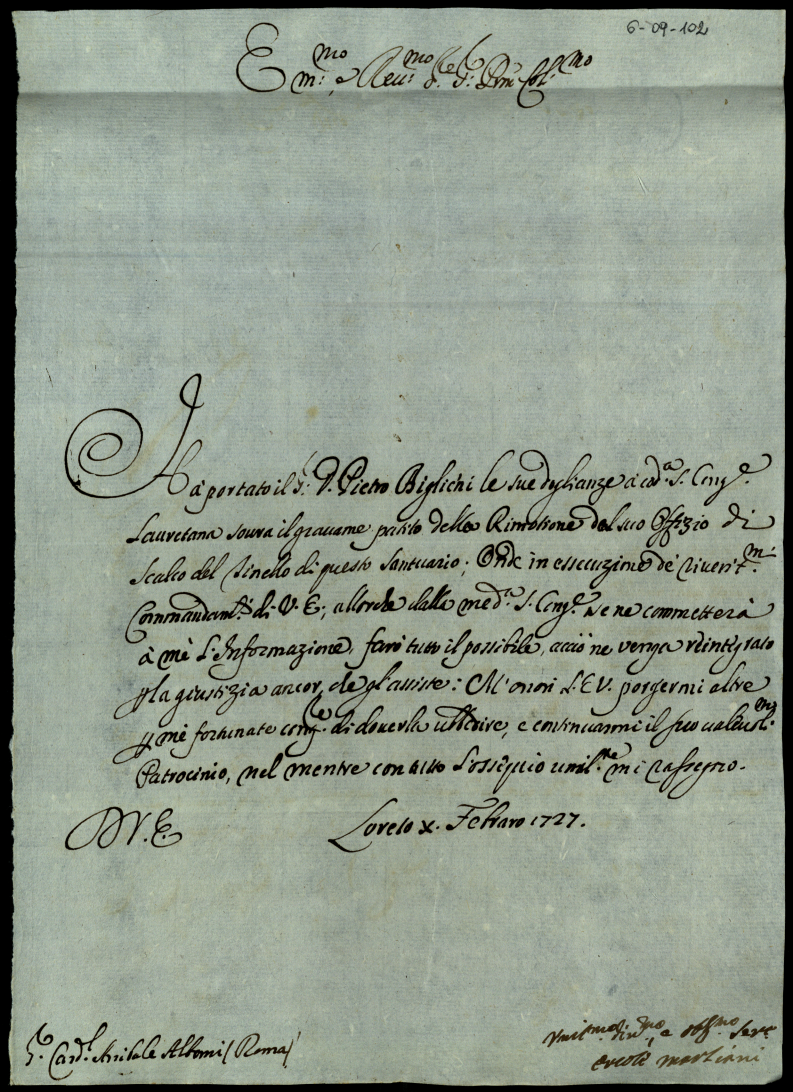 6-09-102
Em:mo e Reu:mo S.re S: Pron Col:mo
Hà portato il S: D. Pietro Biglichi le sue doglianze à cod.a S. Cong.e
Lauretana soura il grauame patito della Rimozione dal suo Offizio di
Scalco del Tinello di questo Santuario; Onde in essecuzione de riuerit.mi
Commandam.ti di V. E., allorche dalla med.a S. Cong.e se ne commetterà
à mè L'Informazione, farò tutto il possibile, acciò ne venga reintegrato
p la giustizia ancor, che gl'assiste: M'onori L'E.V. porgermi altre
p mè fortunate cong.re di douerla ubbidire, e continuarmi il suo ualeuol.mo
Patrocinio, nel mentre con tutto L'ossequio umil.te mi rassegno.
D V. E. Loreto x. Febraro 1727.
S.r Card.l Anibale Albani (Roma)
Umil.mo Diu.mo, e obl.mo Ser.e
Ercole Marliani